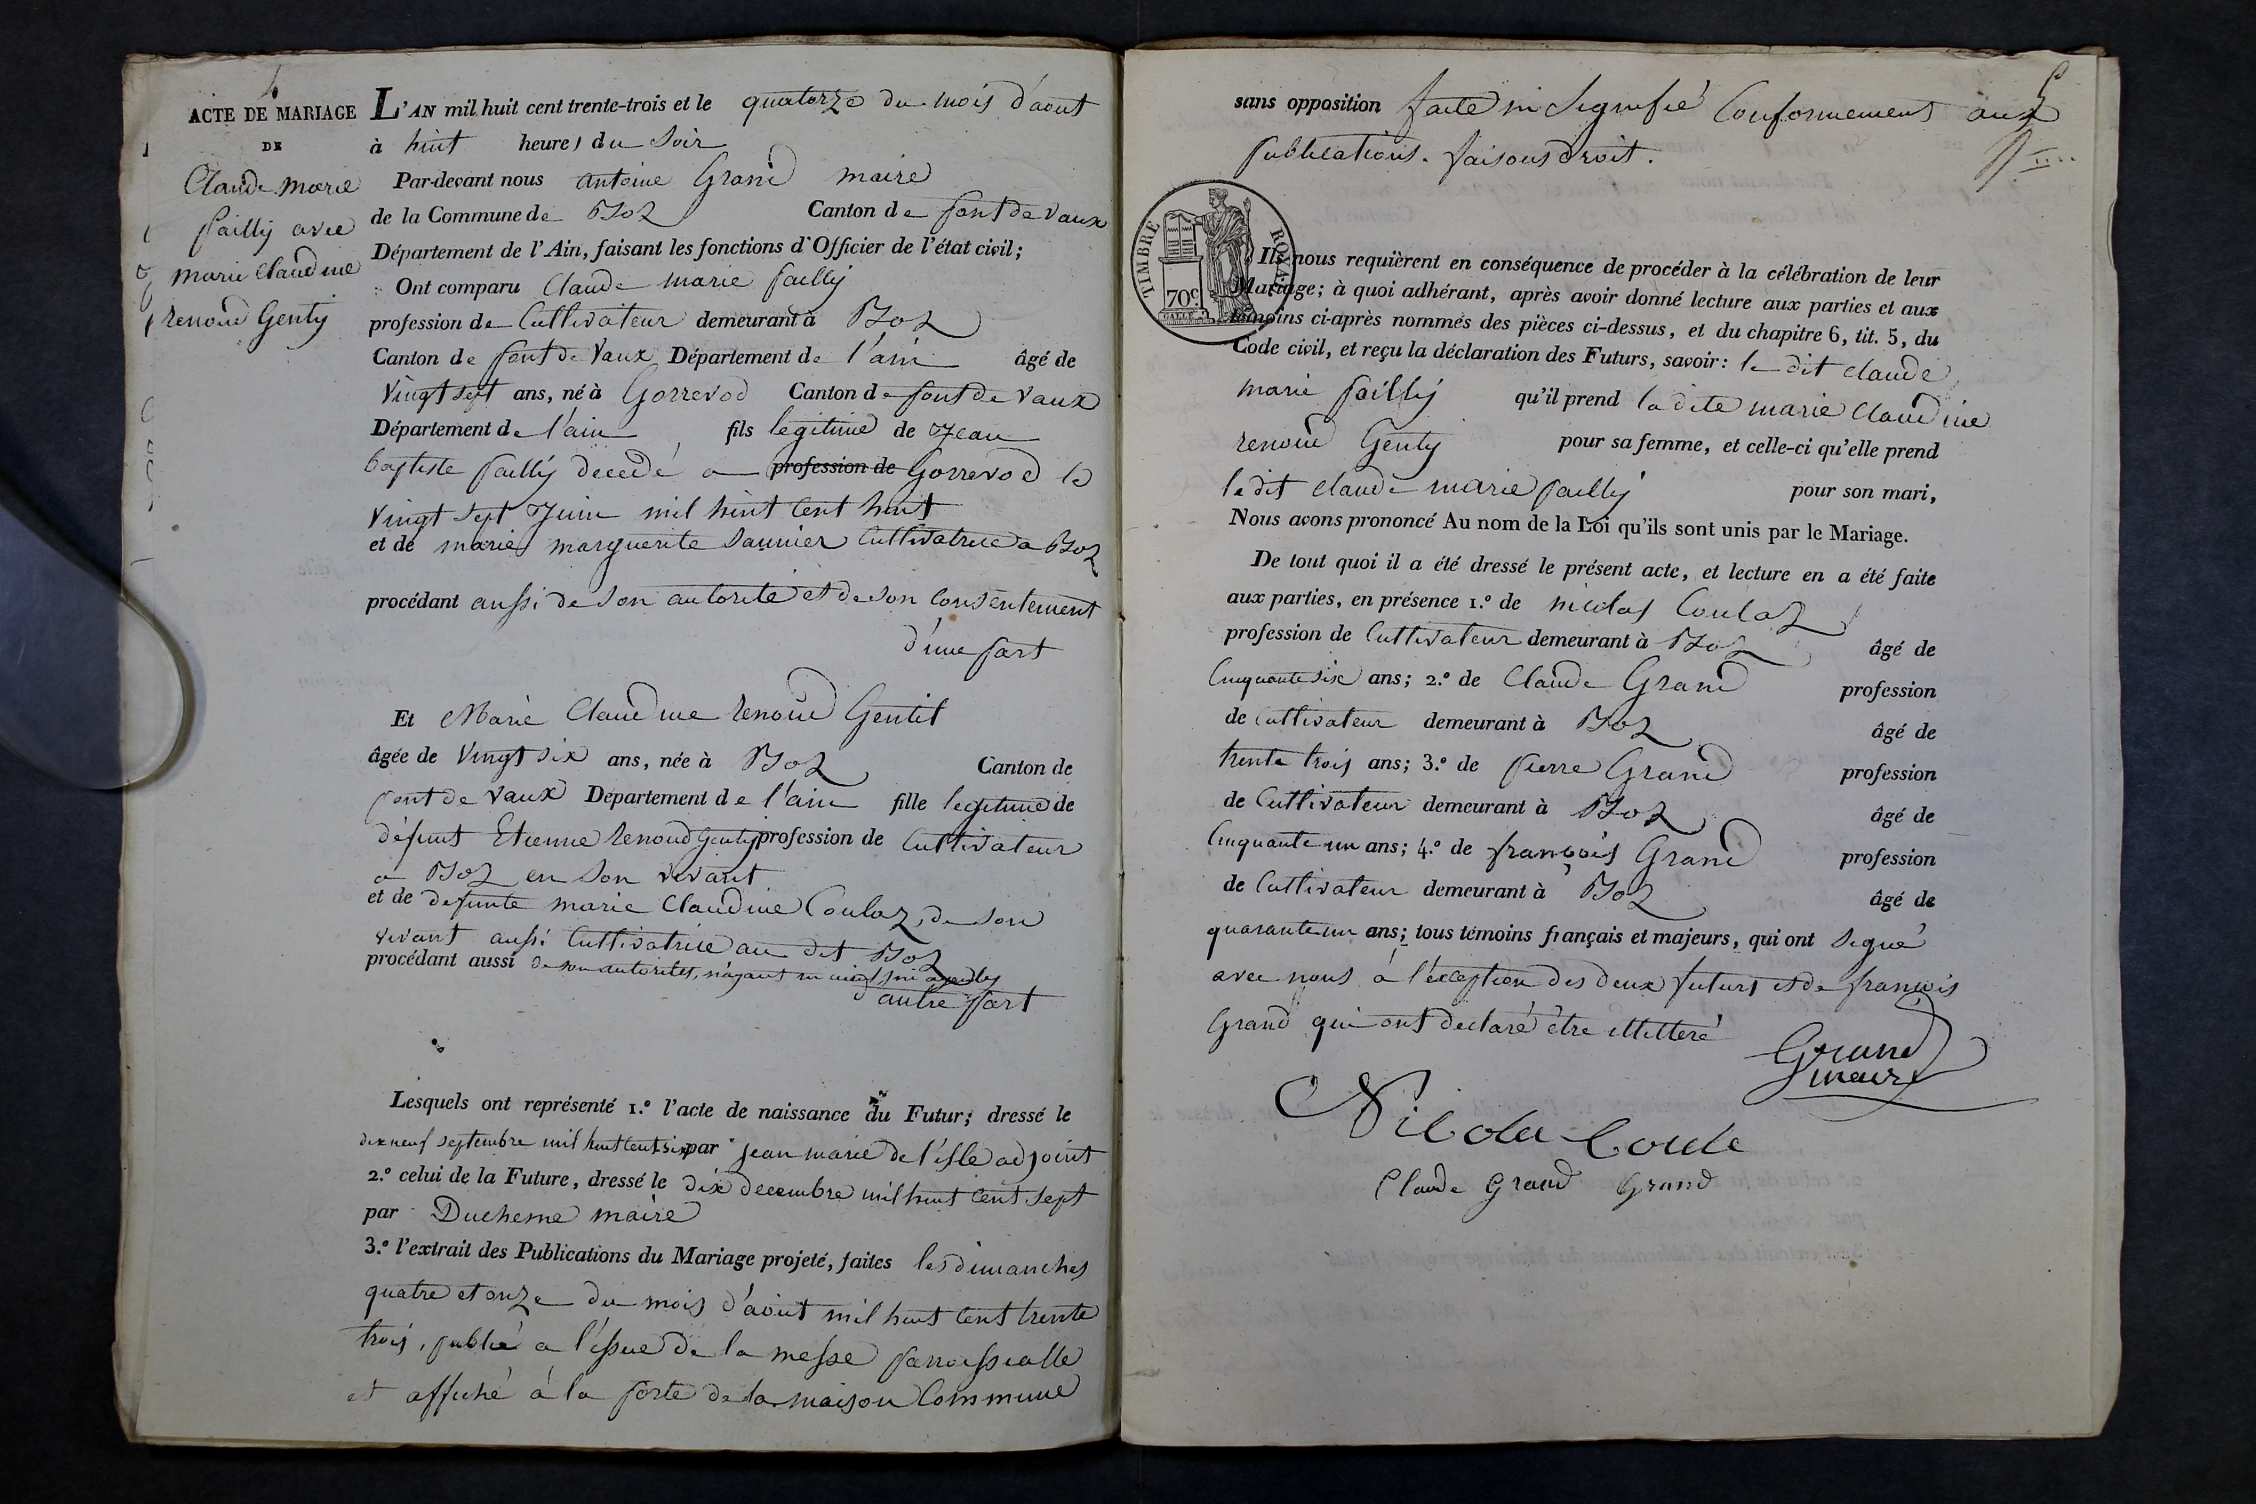 ACTE DE MARIAGE
DE
Claude marie
pailly avec
marie Claudine
renoud Genty
L'AN mil huit cent trente-trois et le quatorze du mois d'aout
à huit heures du soir
Par-devant nous antoine Grand maire
de la Commune de Boz Canton de pont de vaux
Département de l'Ain, faisant les fonctions d'Officier de l'état civil;
Ont comparu Claude marie pailly
profession de Cultivateur demeurant à Boz
Canton de pont de Vaux Département de l'ain âgé de
Vingt sept ans, né à Gorrevod Canton de pont de vaux
Département de l'ain fils legitime de Jean
baptiste pailly decedé a profession de Gorrevod le
vingt sept Juin mil huit Cent huit
et de marie marguerite Saunier Cultivatrice a Boz
procédant aussi de son autorité et de son Consentement
d'une part
Et Marie Claudine renoud Gentil
âgée de Vingt six ans, née à Boz Canton de
pont de vaux Département de l'ain fille legitime de
défunt Etienne renoud Genty profession de Cultivateur
a Boz en son vivant
et de defunte marie Claudine Coulaz, de son
vivant aussi Cultivatrice au dit Boz
procédant aussi de son autorités, n'ayant
d'autre part
Lesquels ont représenté 1.º l'acte de naissance du Futur; dressé le
dix neuf septembre mil huit Cent six par jean marie de l'isle adjoint
2.º celui de la Future, dressé le dix decembre mil huit Cent sept
par Duchesne maire
3.º l'extrait des Publications du Mariage projeté, faites les dimanches
quatre et onze du mois d'aout mil huit Cent trente
trois, publié a l'issue de la messe parroissialle
et affiché à la porte de la maison Commune
sans opposition faite ni Signifié Conformement aux
publications. faisons droit.
TIMBRE ROYAL
70c.
Ils nous requièrent en conséquence de procéder à la célébration de leur
Mariage; à quoi adhérant, après avoir donné lecture aux parties et aux
témoins ci-après nommés des pièces ci-dessus, et du chapitre 6, tit. 5, du
Code civil, et reçu la déclaration des Futurs, savoir: le dit claude
marie pailly qu'il prend la dite marie Claudine
renoud Genty pour sa femme, et celle-ci qu'elle prend
le dit claude marie pailly pour son mari,
Nous avons prononcé Au nom de la Loi qu'ils sont unis par le Mariage.
De tout quoi il a été dressé le présent acte, et lecture en a été faite
aux parties, en présence 1.º de nicolas Coulaz
profession de Cultivateur demeurant à Boz âgé de
Cinquante six ans; 2.º de Claude Grand profession
de Cultivateur demeurant à Boz âgé de
trente trois ans; 3.º de pierre Grand profession
de Cultivateur demeurant à Boz âgé de
Cinquante un ans; 4.º de françois Grand profession
de Cultivateur demeurant à Boz âgé de
quarante un ans; tous témoins français et majeurs, qui ont signé
avec nous à l'exception des deux futurs et de françois
Grand qui ont declaré être illitteré
Grand
maire
Nicola Coula
Claude Grand Grand